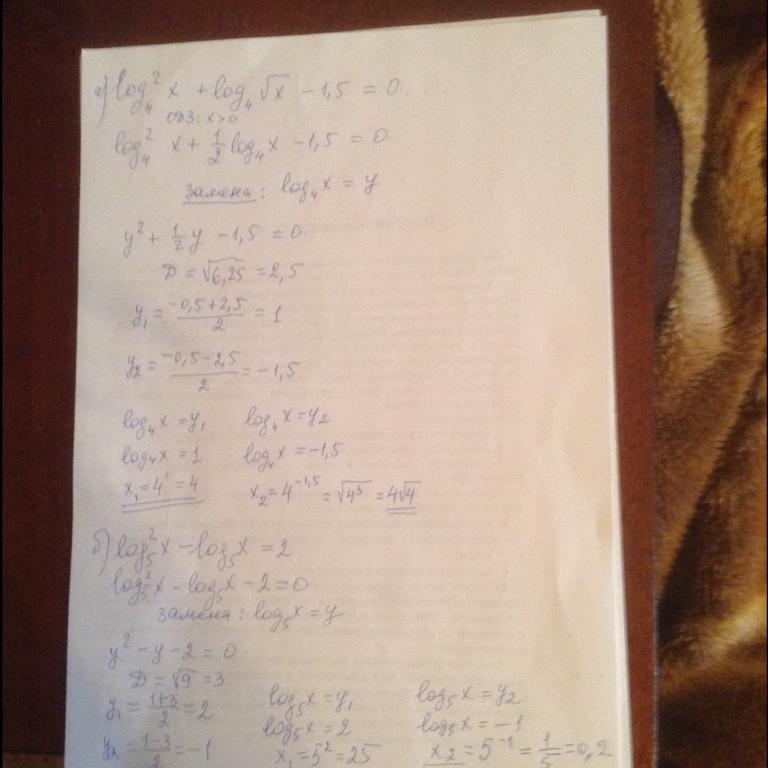 а) log₄² x + log₄ √x − 1,5 = 0.
ОДЗ: x>0
log₄² x + 1/2 log₄ x − 1,5 = 0
замена: log₄ x = y
y² + 1/2 y − 1,5 = 0.
D = √6,25 = 2,5
y₁ = (−0,5+2,5)/2 = 1
y₂ = (−0,5−2,5)/2 = −1,5
log₄ x = y₁ log₄ x = y₂
log₄ x = 1 log₄ x = −1,5
x₁ = 4¹ = 4 x₂ = 4^(−1,5) = √4³ = 4√4
б) log₅² x − log₅ x = 2
log₅² x − log₅ x − 2 = 0
замена: log₅ x = y
y² − y − 2 = 0.
D = √9 = 3
y₁ = (1+3)/2 = 2 log₅ x = y₁ log₅ x = y₂
log₅ x = 2 log₅ x = −1
y₂ = (1−3)/2 = −1 x₁ = 5² = 25 x₂ = 5⁻¹ = 1/5 = 0,2